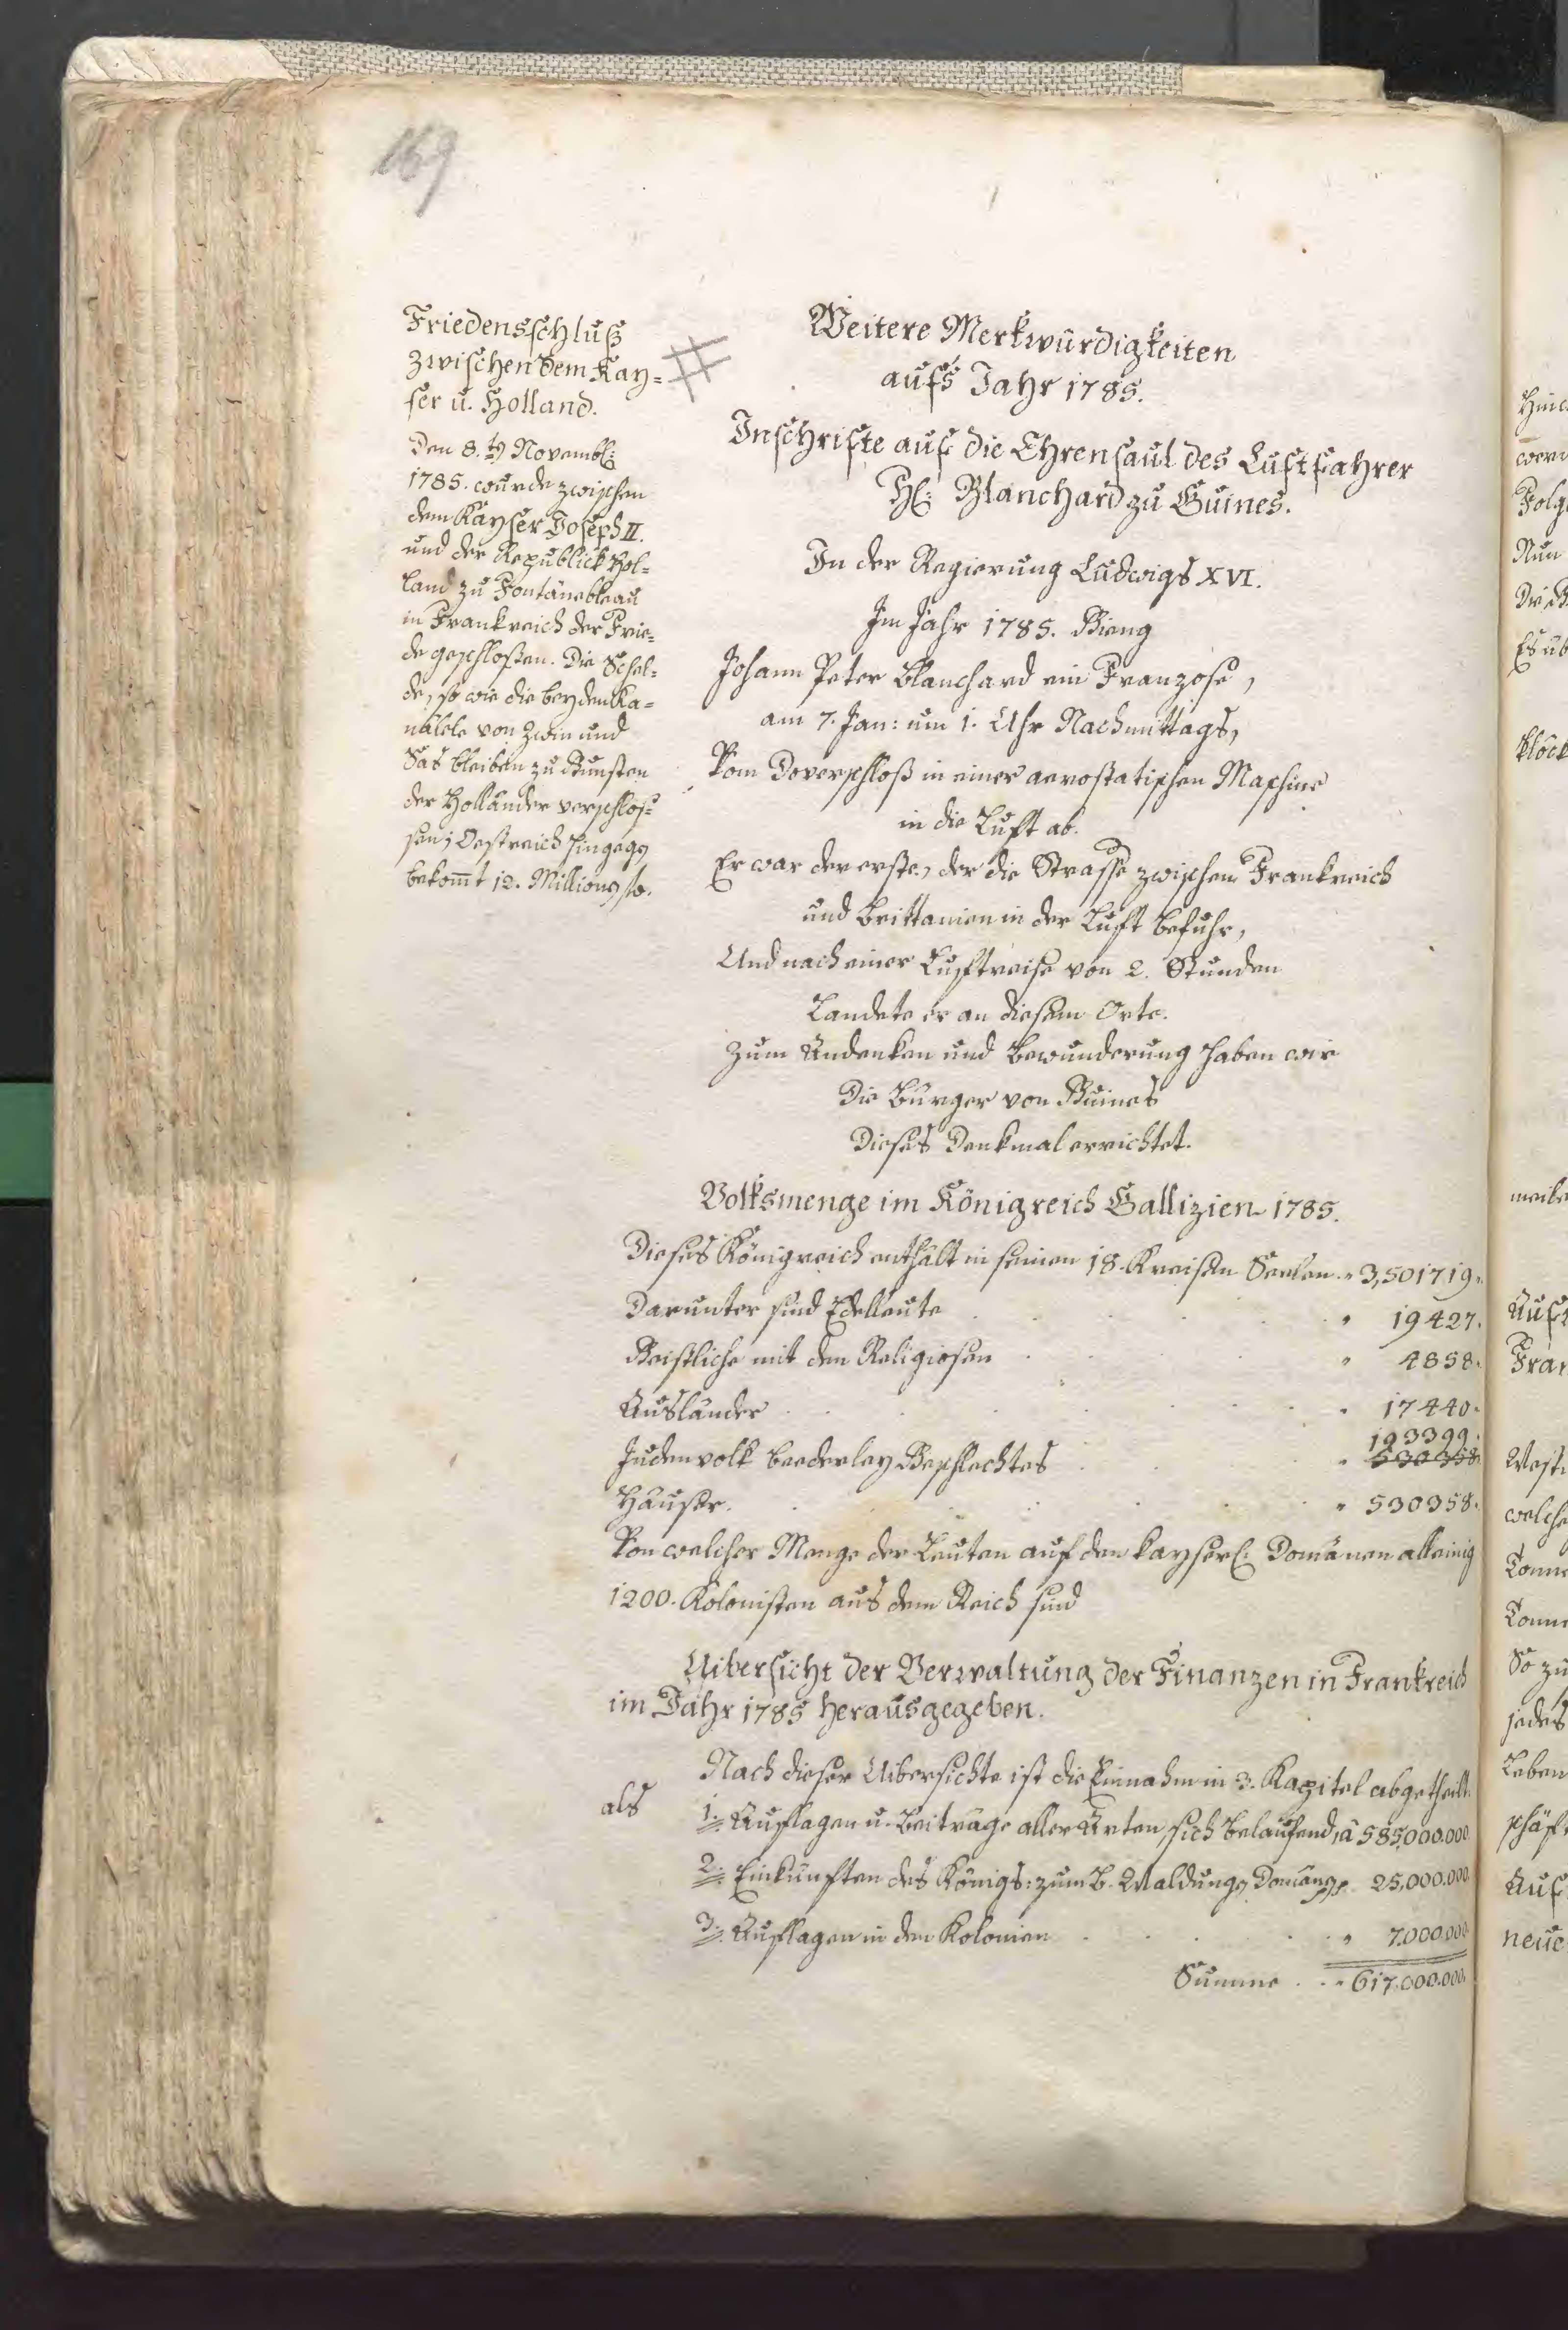 169
Friedensschluß
zwischen dem Kay=
ser u. Holland.
Den 8.ten Novembr:
1785. wurde zwischen
dem Kayser Joseph II.
und der Republick Hol=
land zu Fontänebleau
in Frankreich der Frie=
de geschloßen. Die Schel=
de, so wie die beyden Ka=
näle von Zwin und
Sas bleiben zu Gunsten
der Holländer verschlos=
sen; Oestreich hingegen
bekom̄t 12. Millionen fl.
Weitere Merkwürdigkeiten
aufs Jahr 1785.
Inschrifte auf die Ehrensaul des Luftfahrer
H: Blanchard zu Guines.
In der Regierung Ludwigs XVI.
Im Jahr 1785. Gieng
Johann Peter Blanchard ein Franzose,
am 7. Jan: um 1. Uhr Nachmittags,
Vom Doverschloß in einer aerostatischen Maschine
in die Luft ab.
Er war der erste, der die Strasse zwischen Frankreich
und Brittanien in der Luft befuhr,
Und nach einer Luftreise von 2. Stunden
Landete er an diesem Orte.
Zum Andenken und Bewunderung haben wir
Die Bürger von Guines
Dieses Denkmal errichtet.
Volksmenge im Königreich Gallizien 1785.
Dieses Königreich enthält in seinen 18. Kreisen Seelen „ 3,501719.
Darunter sind Edelleute „ 19427.
Geistliche mit den Religiosen „ 4858.
Ausländer „ 17440.
193399.
Judenvolk beederley Geschlechtes „ 530358.
Häuser. „ 530358.
Von welcher Menge der Leuten auf den kayserl: Domänen alleinig
1200. Kolonisten aus dem Reich sind
Uibersicht der Verwaltung der Finanzen in Frankreich
im Jahr 1785 herausgegeben.
Nach dieser Uibersichte ist die Einnahm in 3. Kapitel abgetheilt.
als 1. Auflagen u. Beiträge aller Arten, sich belaufend, â 585,000.000
2. Einkünften des Königs: zum B. Waldungen, Domänen 25,000.000
3. Auflagen in den Kolonien „ 7.000.000
Summe „ 617.000.000.